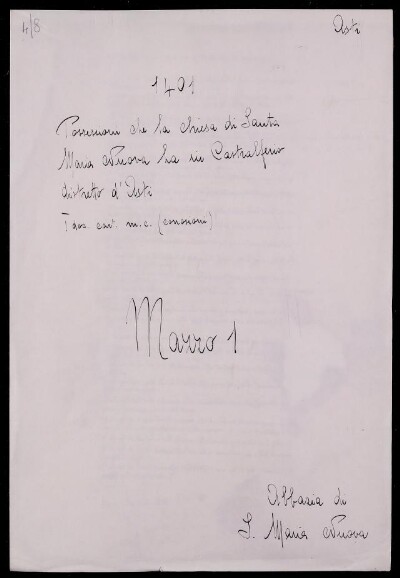 4/8
Asti
1401
Possessioni che la chiesa di Santa
Maria Nuova ha in Castralfeno
distretto d'Asti
1 doc. cart. m.c. (consunto)
Mazzo 1
Abbazia di
S. Maria Nuova